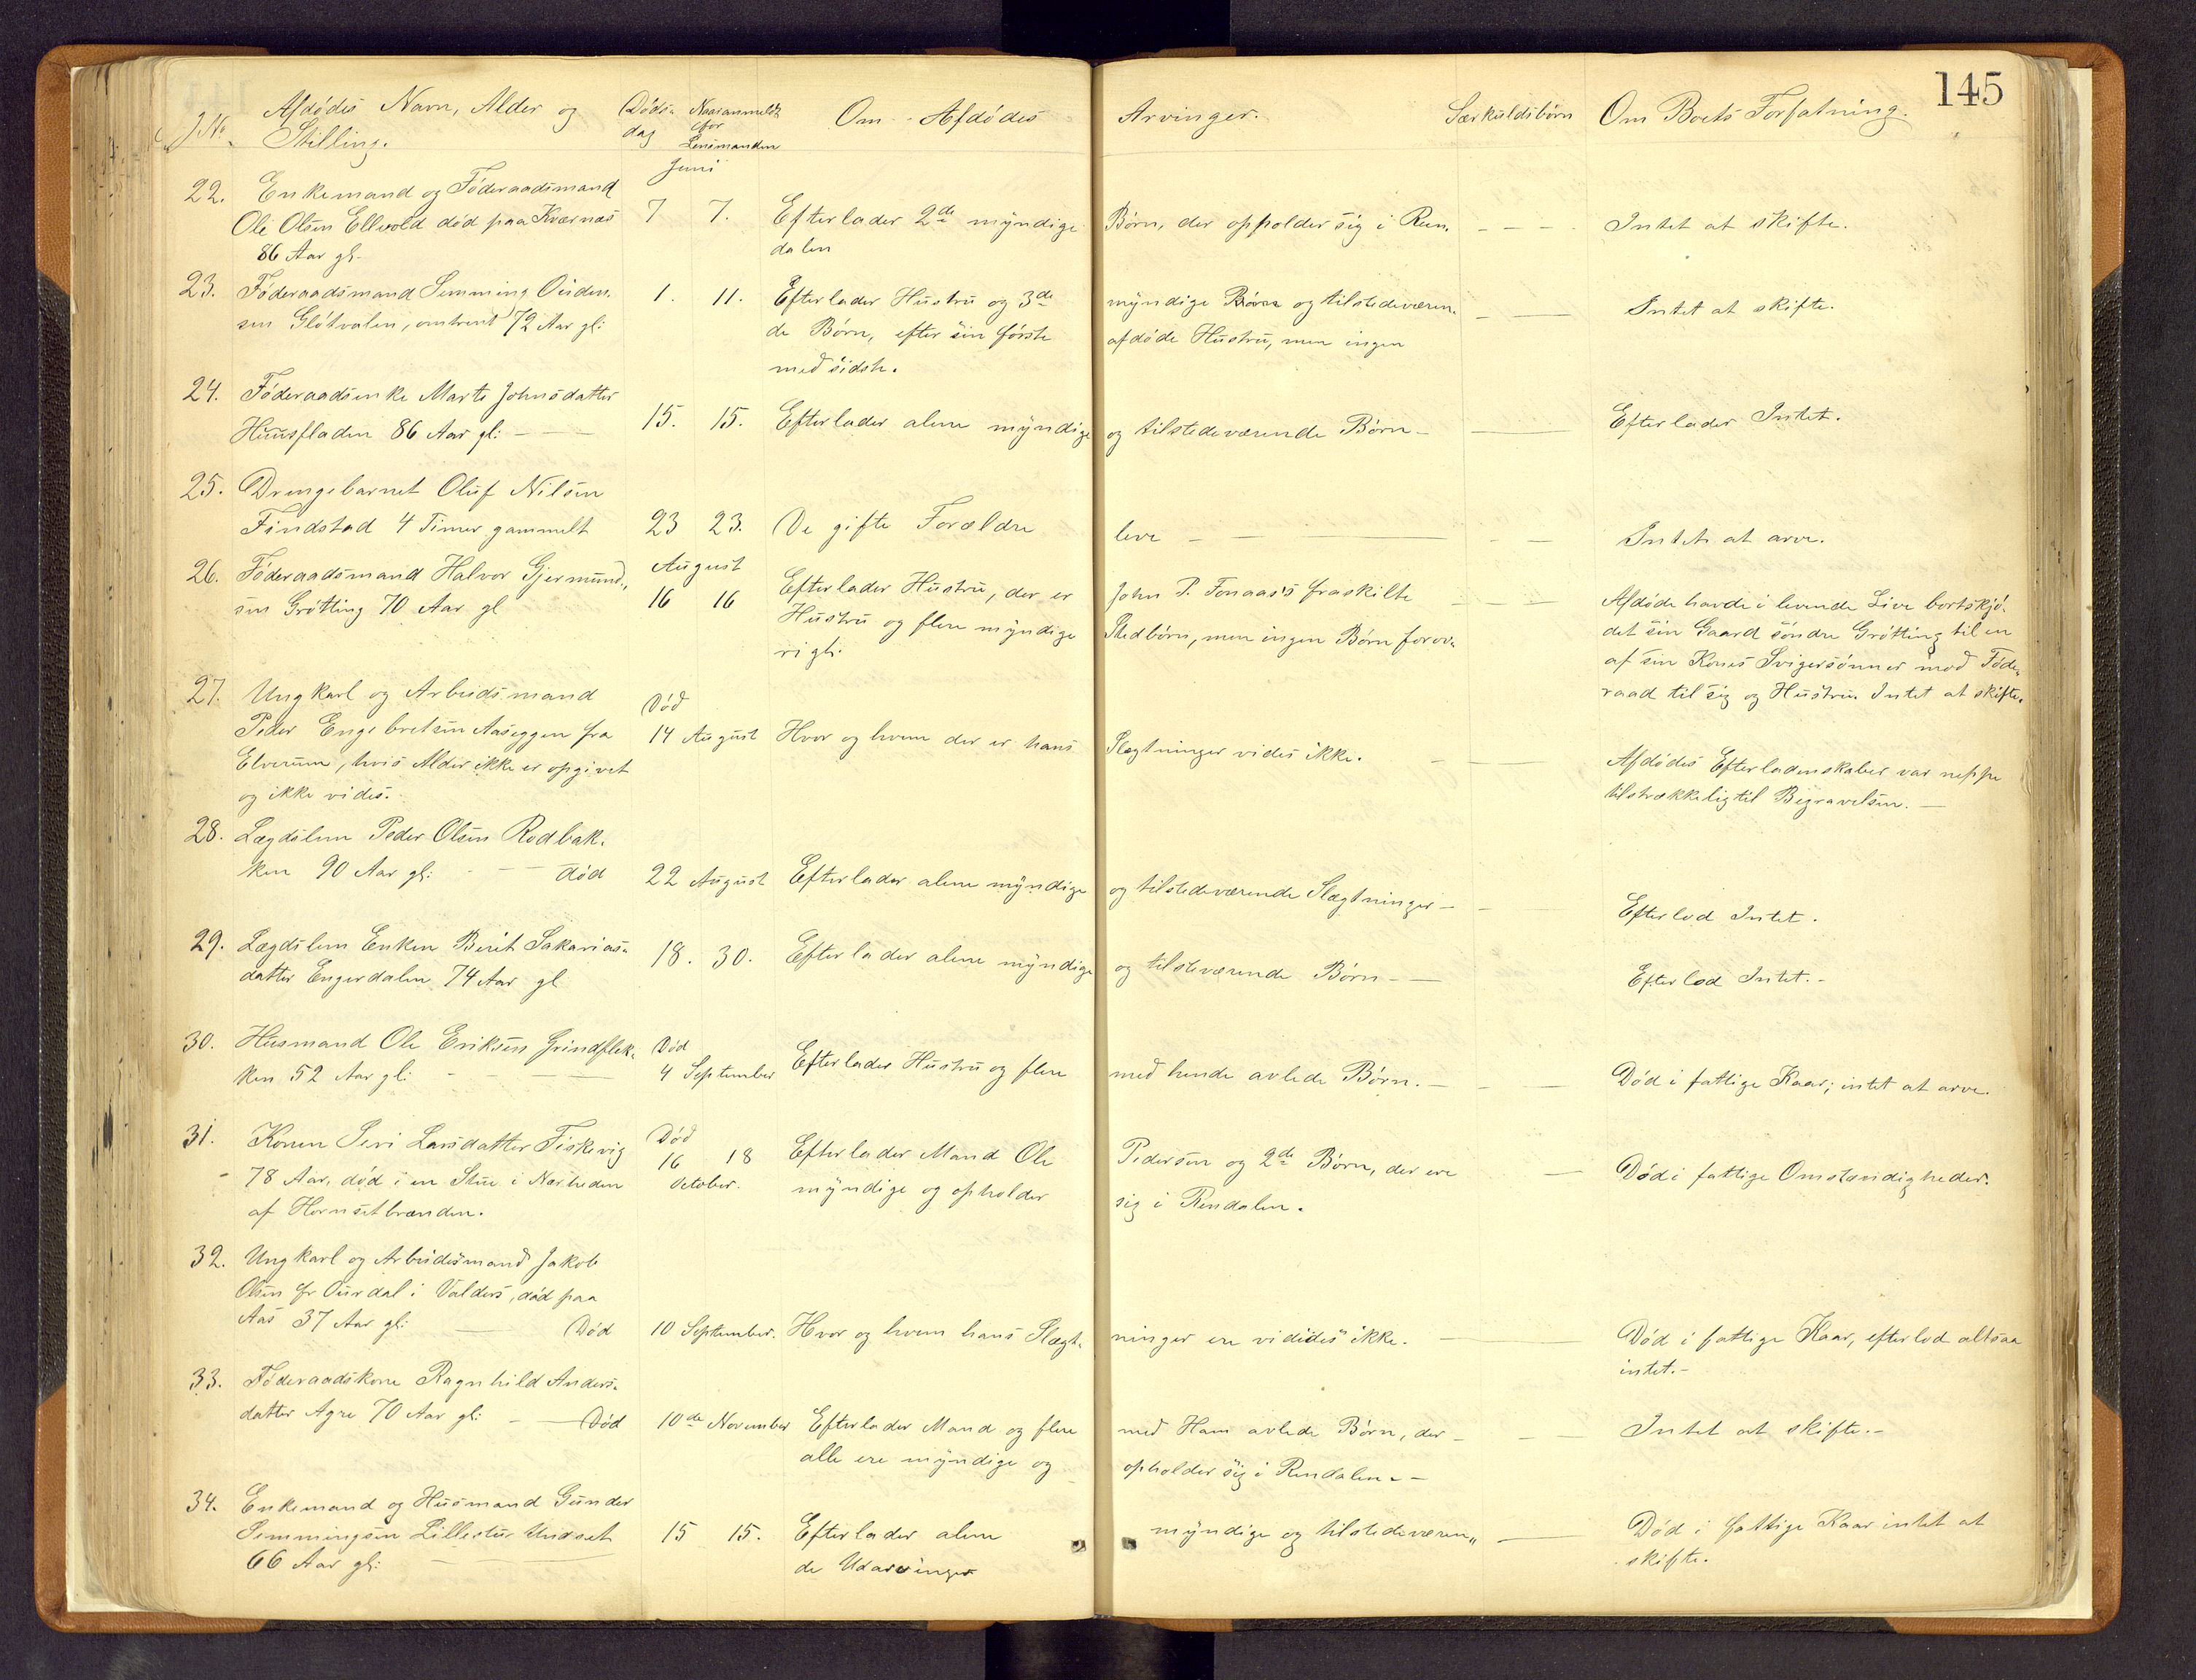 145
No. Afdødes Navn, Alder og Stilling. Døds- dag Naar anmeldt for Lensmanden Om Afdødes Arvinger. Særkuldsbørn Om Boets Forfatning.
Juni
22. Enkemand og Føderaadsmand
Ole Olsen Ellevold død paa Kværnæs 7 7. Efterlader 2de myndige Børn, der oppolder sig i Ren- - - - Intet at skifte.
86 Aar gl. dalen
23. Føderaadsmand Semming Ouden- 1. 11. Efterlader Hustru og 3de myndige Børn og tilstedeværen- - — Intet at skifte.
sen Gløtvolen, omtrent 72 Aar gl: de Børn, efter sin første afdøde Hustru, men ingen
med sidste.
24. Føderaadsenke Marte Johnsdatter
Huusfladen 86 Aar gl: — 15. 15. Efterlader alene myndige og tilstedeværende Børn — Efterlader Intet.
25. Drengebarnet Oluf Nilsen
Findstad 4 Timer gammelt 23 23. De gifte Forældre leve — Intet at arve.
26. Føderaadsmand Halvor Gjermund- August
sen Grøtting 70 Aar gl 16 16 Efterlader Hustru, der er John P. Fonaas's fraskilte — Afdøde havde i levende Live bortskjø-
Hustru og flere myndige Stedbørn, men ingen Børn forøv- det sin Gaard søndre Grøtting til en
rigt. af sin Kones Svigersønner mod Føde-
raad til sig og Hustru. Intet at skifte.
27. Ungkarl og Arbeidsmand Død
Peder Engebretsen Aaseggen fra 14 August Hvor og hvem der er hans Slægtninger vides ikke. - — Afdødes Efterladenskaber var neppe
Elverum, hvis Alder ikke er opgivet tilstrækkelig til Begravelsen. —
og ikke vides.
28. Lægdslem Peder Olsen Rodbak-
ken 90 Aar gl: — død 22 August Efterlader alene myndige og tilstedeværende Slægtninger — Efterlod Intet.
29. Lægdslem Enken Berit Sakarias- 18. 30. Efterlader alene myndige og tilsteværende Børn — Efterlod Intet. -
datter Engerdalen 74 Aar gl
30. Husmand Ole Eriksen Grindflek- Død
ken 52 Aar gl: — 4 September Efterlader Hustru og flere med hende avlede Børn. — Død i fattige Kaar; intet at arve.
31. Konen Siri Larsdatter Fiskevig Død
78 Aar, død i en Stue i Nærheden 16 18 Efterlader Mand Ole Pedersen og 2de Børn, der ere — Død i fattige Omstændigheder.
af Hornsetbrænden. October. myndige og opholder sig i Rendalen.
32. Ungkarl og Arbeidsmand Jakob
Olsen fr Ourdal i Valders, død paa
Aas 37 Aar gl: — Død 10 September. Hvor og hvem hans Slægt- ninger ere vidides ikke. — Død i fattige Kaar, efterlod altsaa
intet. -
33. Føderaadskone Ragnhild Anders-
datter Agre 70 Aar gl: — Død 10de November Efterlader Mand og flere med Ham avlede Børn, der - — Intet at skifte. -
alle ere myndige og opholder sig i Rendalen. -
34. Enkemand og Husmand Gunder
Semmingsen Lillestue Undset 15 15. Efterlader alene myndige og tilstedeværen- — Død i fattige Kaar intet at
66 Aar gl: — de Udarvinger skifte.